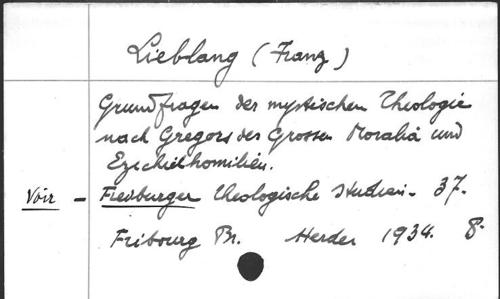 Lieblang (Franz)
Grundfragen der mystischen Theologie
nach Gregors des Grossen Moralia und
Ezechielhomilien.
Voir - Freiburger theologische Studien. 37.
Fribourg Br. Herder 1934. 8.